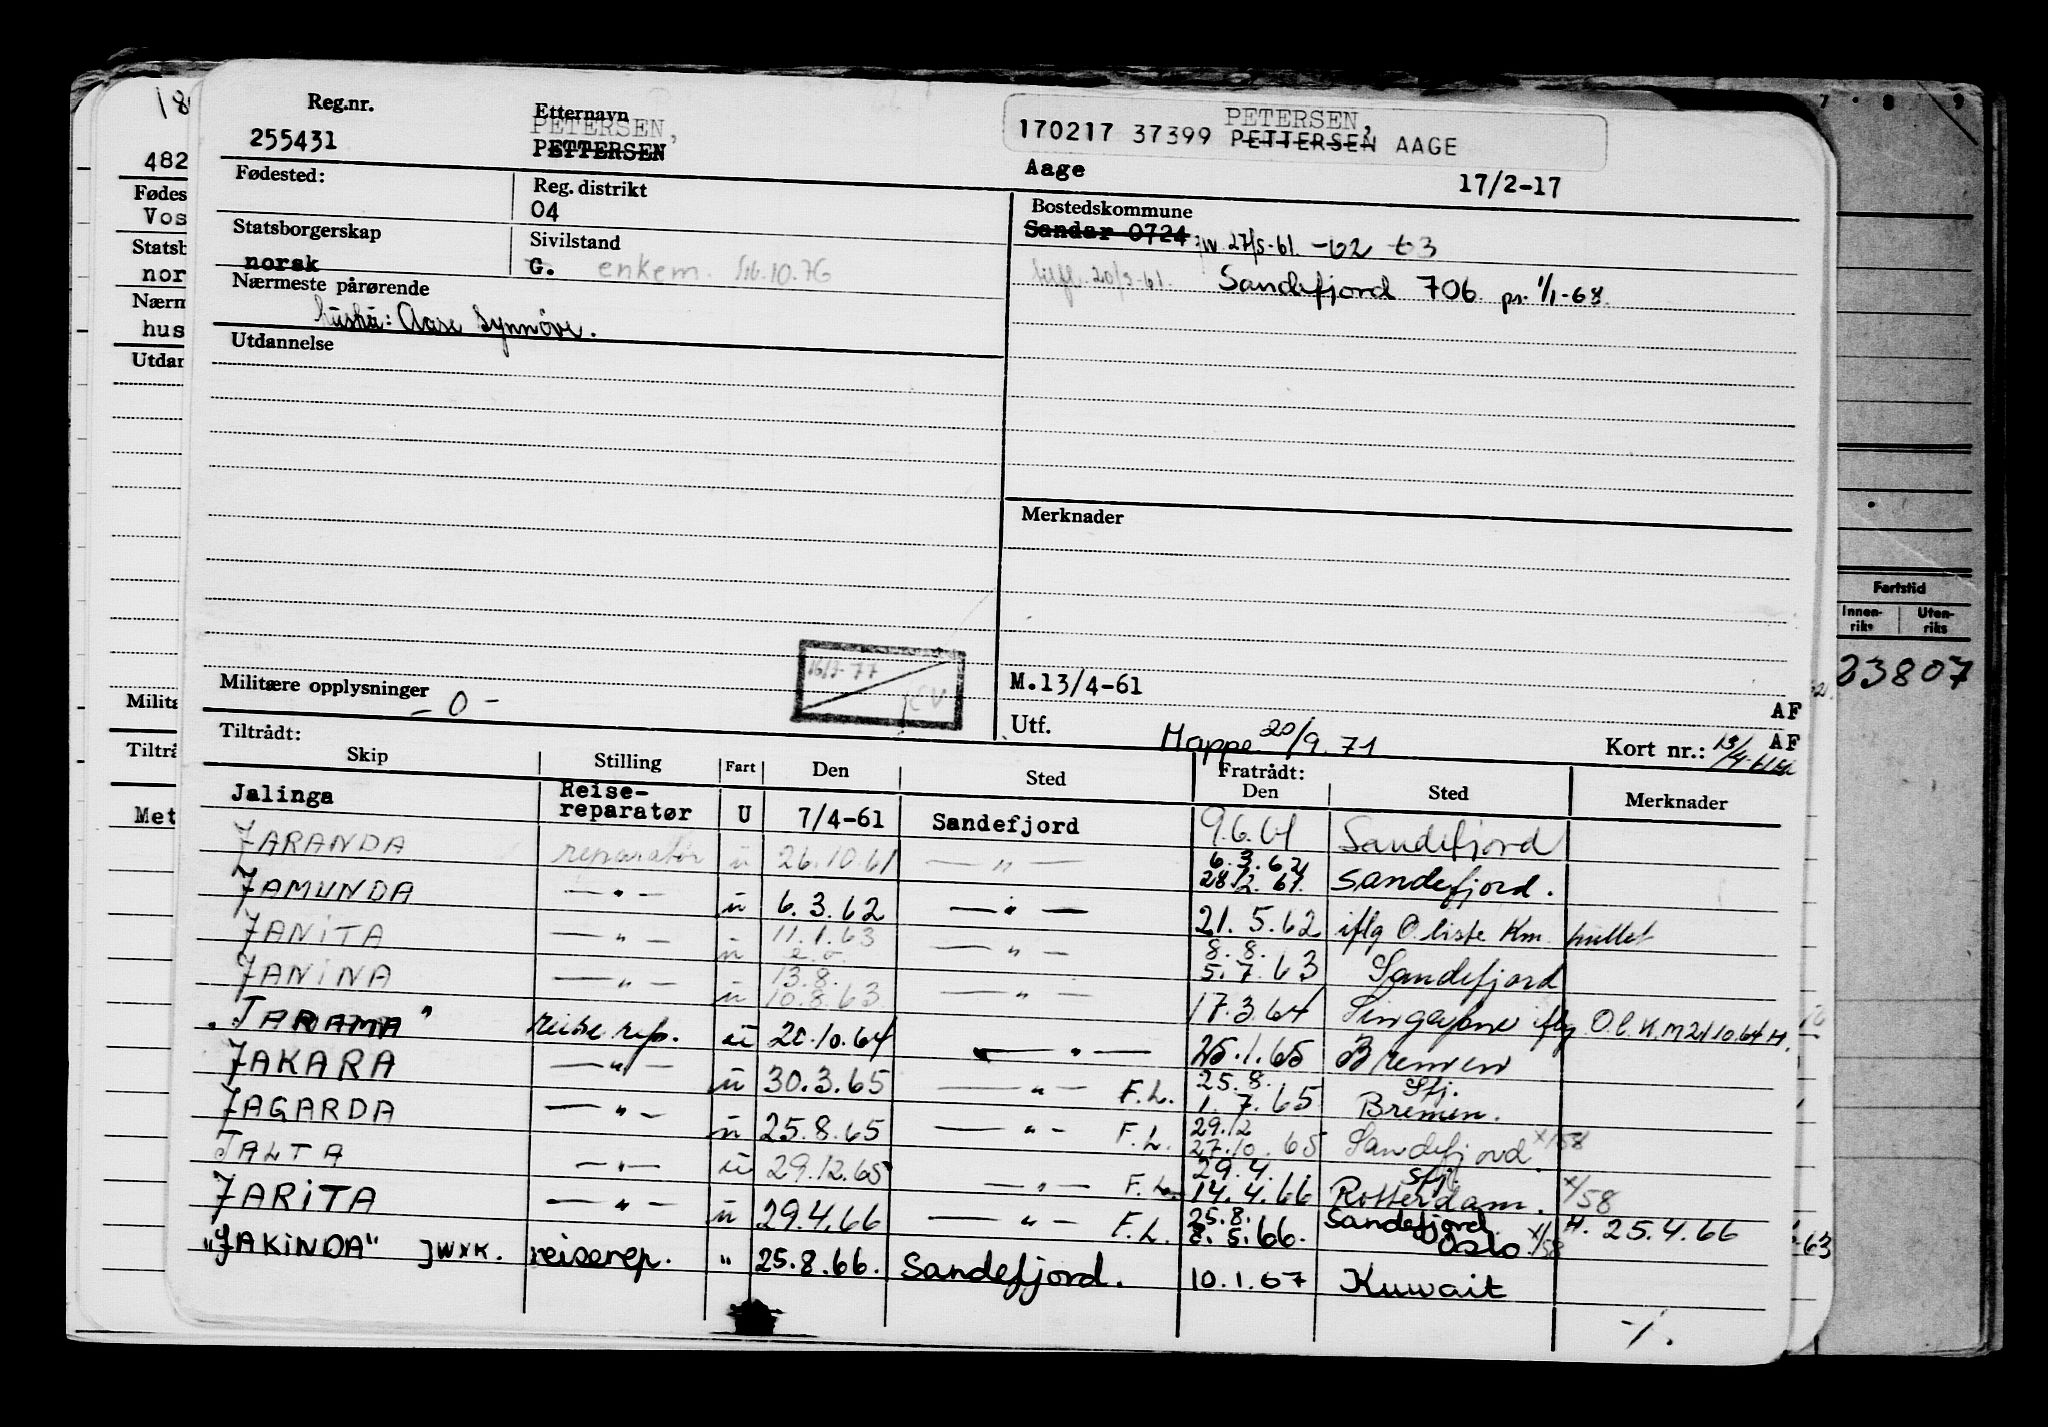 Reg.nr. Etternavn PETERSEN,
255431 PETERSEN, 170217 37399 PETTERSEN AAGE
PETTERSEN Aage 17/2-17
Fødested: Reg. distrikt Bostedskommune
04 Sandar 0724 27/5-61. -62 63
Statsborgerskap Sivilstand
norsk G. enkem. 10.76 20/3-61. Sandefjord 706 pr. 1/1-68.
Nærmeste pårørende
hustru: Aase Synnøve.
Utdannelse
Merknader
16/2-77
Militære opplysninger M.13/4-61
- 0 - AF
Utf. Mappe 20/9.71 Kort nr.: AF
Tiltrådt: Fratrådt:
Skip Stilling Fart Den Sted Den Sted Merknader
Jalinga Reise-
reparatør U 7/4-61 Sandefjord 9.6.61 Sandefjord
JARANDA reparatør u 26.10.61 — " — 6.3.62
28/2.61. Sandefjord.
JAMUNDA — " — u 6.3.62 — " — 21.5.62 iflg O. liste Km. hullet
JANITA — " — u 11.1.63 — " — 8.8.
5.7.63 Sandefjord
JANINA — " — u 13.8.
10.8.63 — " — 17.3.64 Singapore iflg O.l.K.M 21.10.64 H.
"JARAMA" reise rep. u 20.10.64 — " — 25.1.65 Bremen
JAKARA — " — u 30.3.65 — " — F.L. 25.8.
1.7.65 Sfj.
Bremen.
JAGARDA — " — u 25.8.65 — " — F.L. 29.12
27.10.65 Sandefjord. x/58
JALTA — " — u 29.12.65 — " — F.L. 29.4.
14.4.66 Sfj.
Rotterdam. x/58
JARITA — " — u 29.4.66 — " — F.L. 25.8.
2.5.66. Sandefjord.
Oslo x/58 H. 25.4.66
"JAKINDA" JWXK. reiserep. " 25.8.66. Sandefjord. 10.1.67 Kuwait
-/.
482
Fødes
Vos
Statsb
nor
Nærm
hus
Utdan
Milita
Tiltrå
Met
7 8 9
Fartstid
Innen-
riks Uten-
riks
23807
-63